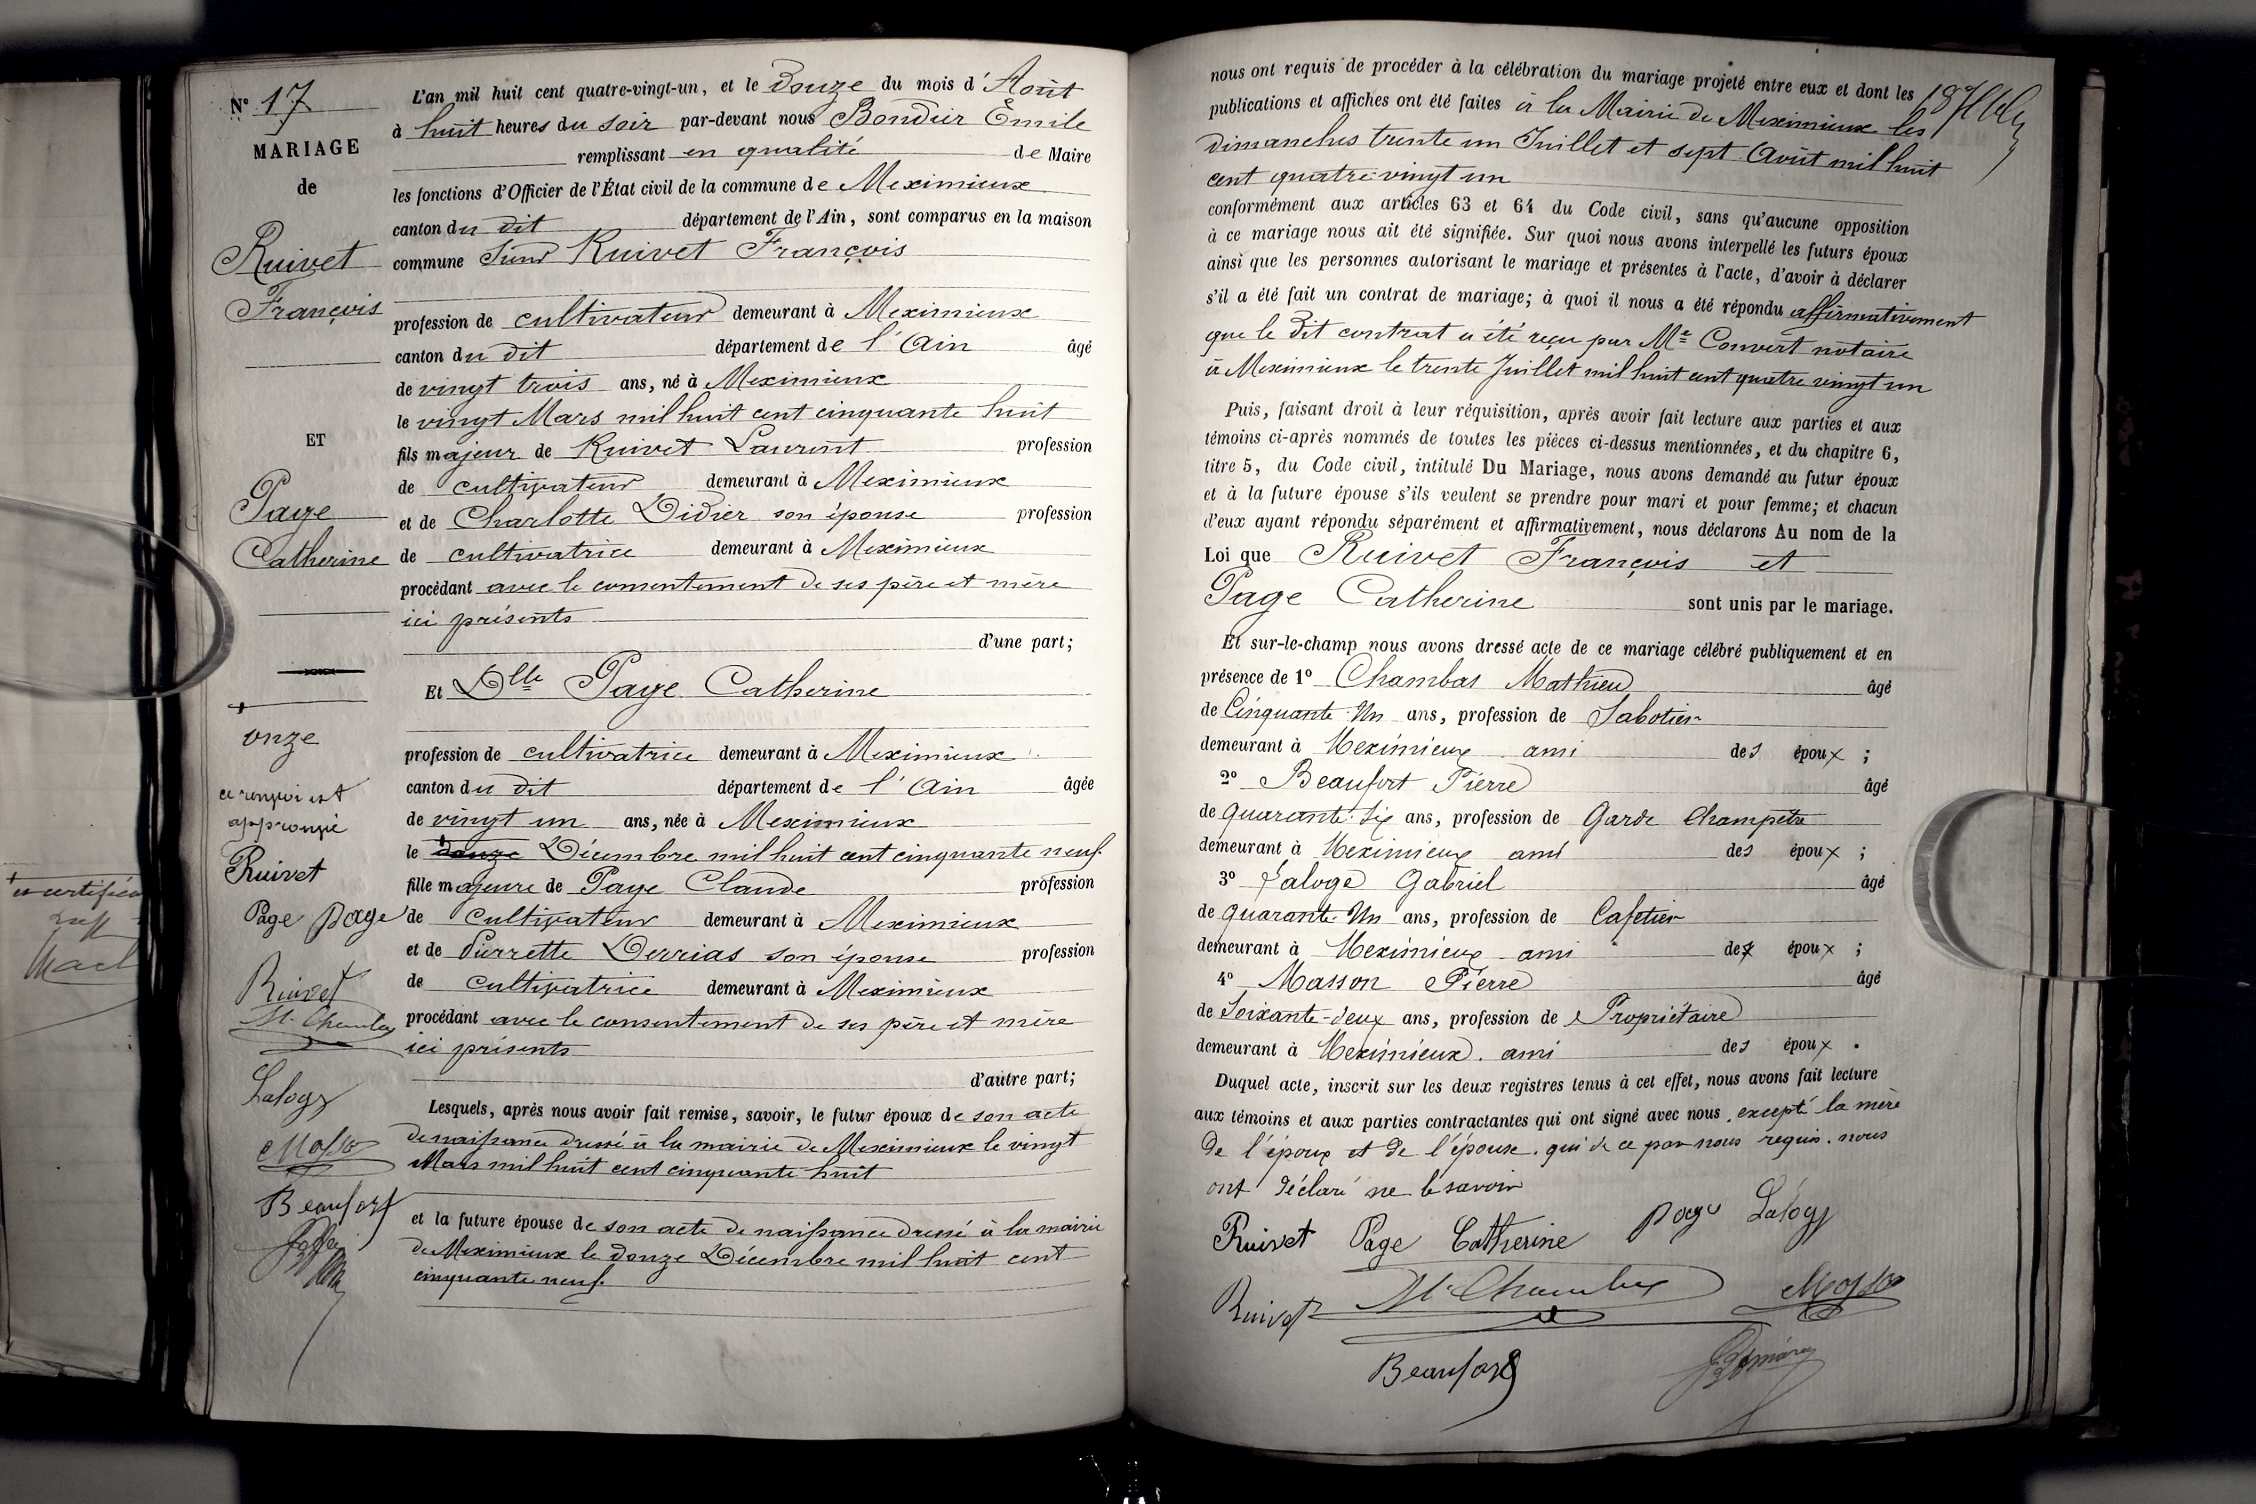 Nº 17
MARIAGE
de
Ruivet
François
ET
Page
Catherine
onze
ce renvoi est
approuvé
Ruivet
Page page
Ruivet
M. Chambas
Laloge
Masson
Beaufort
L'an mil huit cent quatre-vingt-un, et le douze du mois d'Août
à huit heures du soir par-devant nous Bondier Emile
remplissant en qualité de Maire
les fonctions d'Officier de l'État civil de la commune de Meximieux
canton du dit département de l'Ain, sont comparus en la maison
commune Sieur Ruivet François
profession de cultivateur demeurant à Meximieux
canton du dit département de l'Ain âgé
de vingt trois ans, né à Meximieux
le vingt Mars mil huit cent cinquante huit
fils majeur de Ruivet Laurent profession
de cultivateur demeurant à Meximieux
et de Charlotte Didier son épouse profession
de cultivatrice demeurant à Meximieux
procédant avec le consentement de ses père et mère
ici présents
d'une part;
Et Dlle Page Catherine
profession de cultivatrice demeurant à Meximieux
canton du dit département de l'Ain âgée
de vingt un ans, née à Meximieux
le douze Décembre mil huit cent cinquante neuf
fille majeure de Page Claude profession
de cultivateur demeurant à Meximieux
et de Pierrette Derrias son épouse profession
de cultivatrice demeurant à Meximieux
procédant avec le consentement de ses père et mère
ici présents
d'autre part;
Lesquels, après nous avoir fait remise, savoir, le futur époux de son acte
de naissance dressé à la mairie de Meximieux le vingt
Mars mil huit cent cinquante huit
et la future épouse de son acte de naissance dressé à la mairie
de Meximieux le douze Décembre mil huit cent
cinquante neuf
nous ont requis de procéder à la célébration du mariage projeté entre eux et dont les
publications et affiches ont été faites à la Mairie de Meximieux les
dimanches trente un Juillet et sept Août mil huit
cent quatre vingt un
conformément aux articles 63 et 64 du Code civil, sans qu'aucune opposition
à ce mariage nous ait été signifiée. Sur quoi nous avons interpellé les futurs époux
ainsi que les personnes autorisant le mariage et présentes à l'acte, d'avoir à déclarer
s'il a été fait un contrat de mariage; à quoi il nous a été répondu affirmativement
que le dit contrat a été reçu par Me Convert notaire
à Meximieux le trente Juillet mil huit cent quatre vingt un
Puis, faisant droit à leur réquisition, après avoir fait lecture aux parties et aux
témoins ci-après nommés de toutes les pièces ci-dessus mentionnées, et du chapitre 6,
titre 5, du Code civil, intitulé Du Mariage, nous avons demandé au futur époux
et à la future épouse s'ils veulent se prendre pour mari et pour femme; et chacun
d'eux ayant répondu séparément et affirmativement, nous déclarons Au nom de la
Loi que Ruivet François et
Page Catherine sont unis par le mariage.
Et sur-le-champ nous avons dressé acte de ce mariage célébré publiquement et en
présence de 1º Chambas Mathieu âgé
de Cinquante Un ans, profession de Sabotier
demeurant à Meximieux ami des époux ;
2º Beaufort Pierre âgé
de quarante-six ans, profession de Garde Champêtre
demeurant à Meximieux ami des époux ;
3º Laloge Gabriel âgé
de quarante-Un ans, profession de Cafetier
demeurant à Meximieux ami des époux ;
4º Masson Pierre âgé
de Soixante-deux ans, profession de Propriétaire
demeurant à Meximieux. ami des époux .
Duquel acte, inscrit sur les deux registres tenus à cet effet, nous avons fait lecture
aux témoins et aux parties contractantes qui ont signé avec nous, excepté la mère
de l'époux et de l'épouse. qui de ce par nous requis. nous
ont déclaré ne le savoir
Ruivet Page Catherine page Laloge
Ruivet M. Chambas Masson
Beaufort